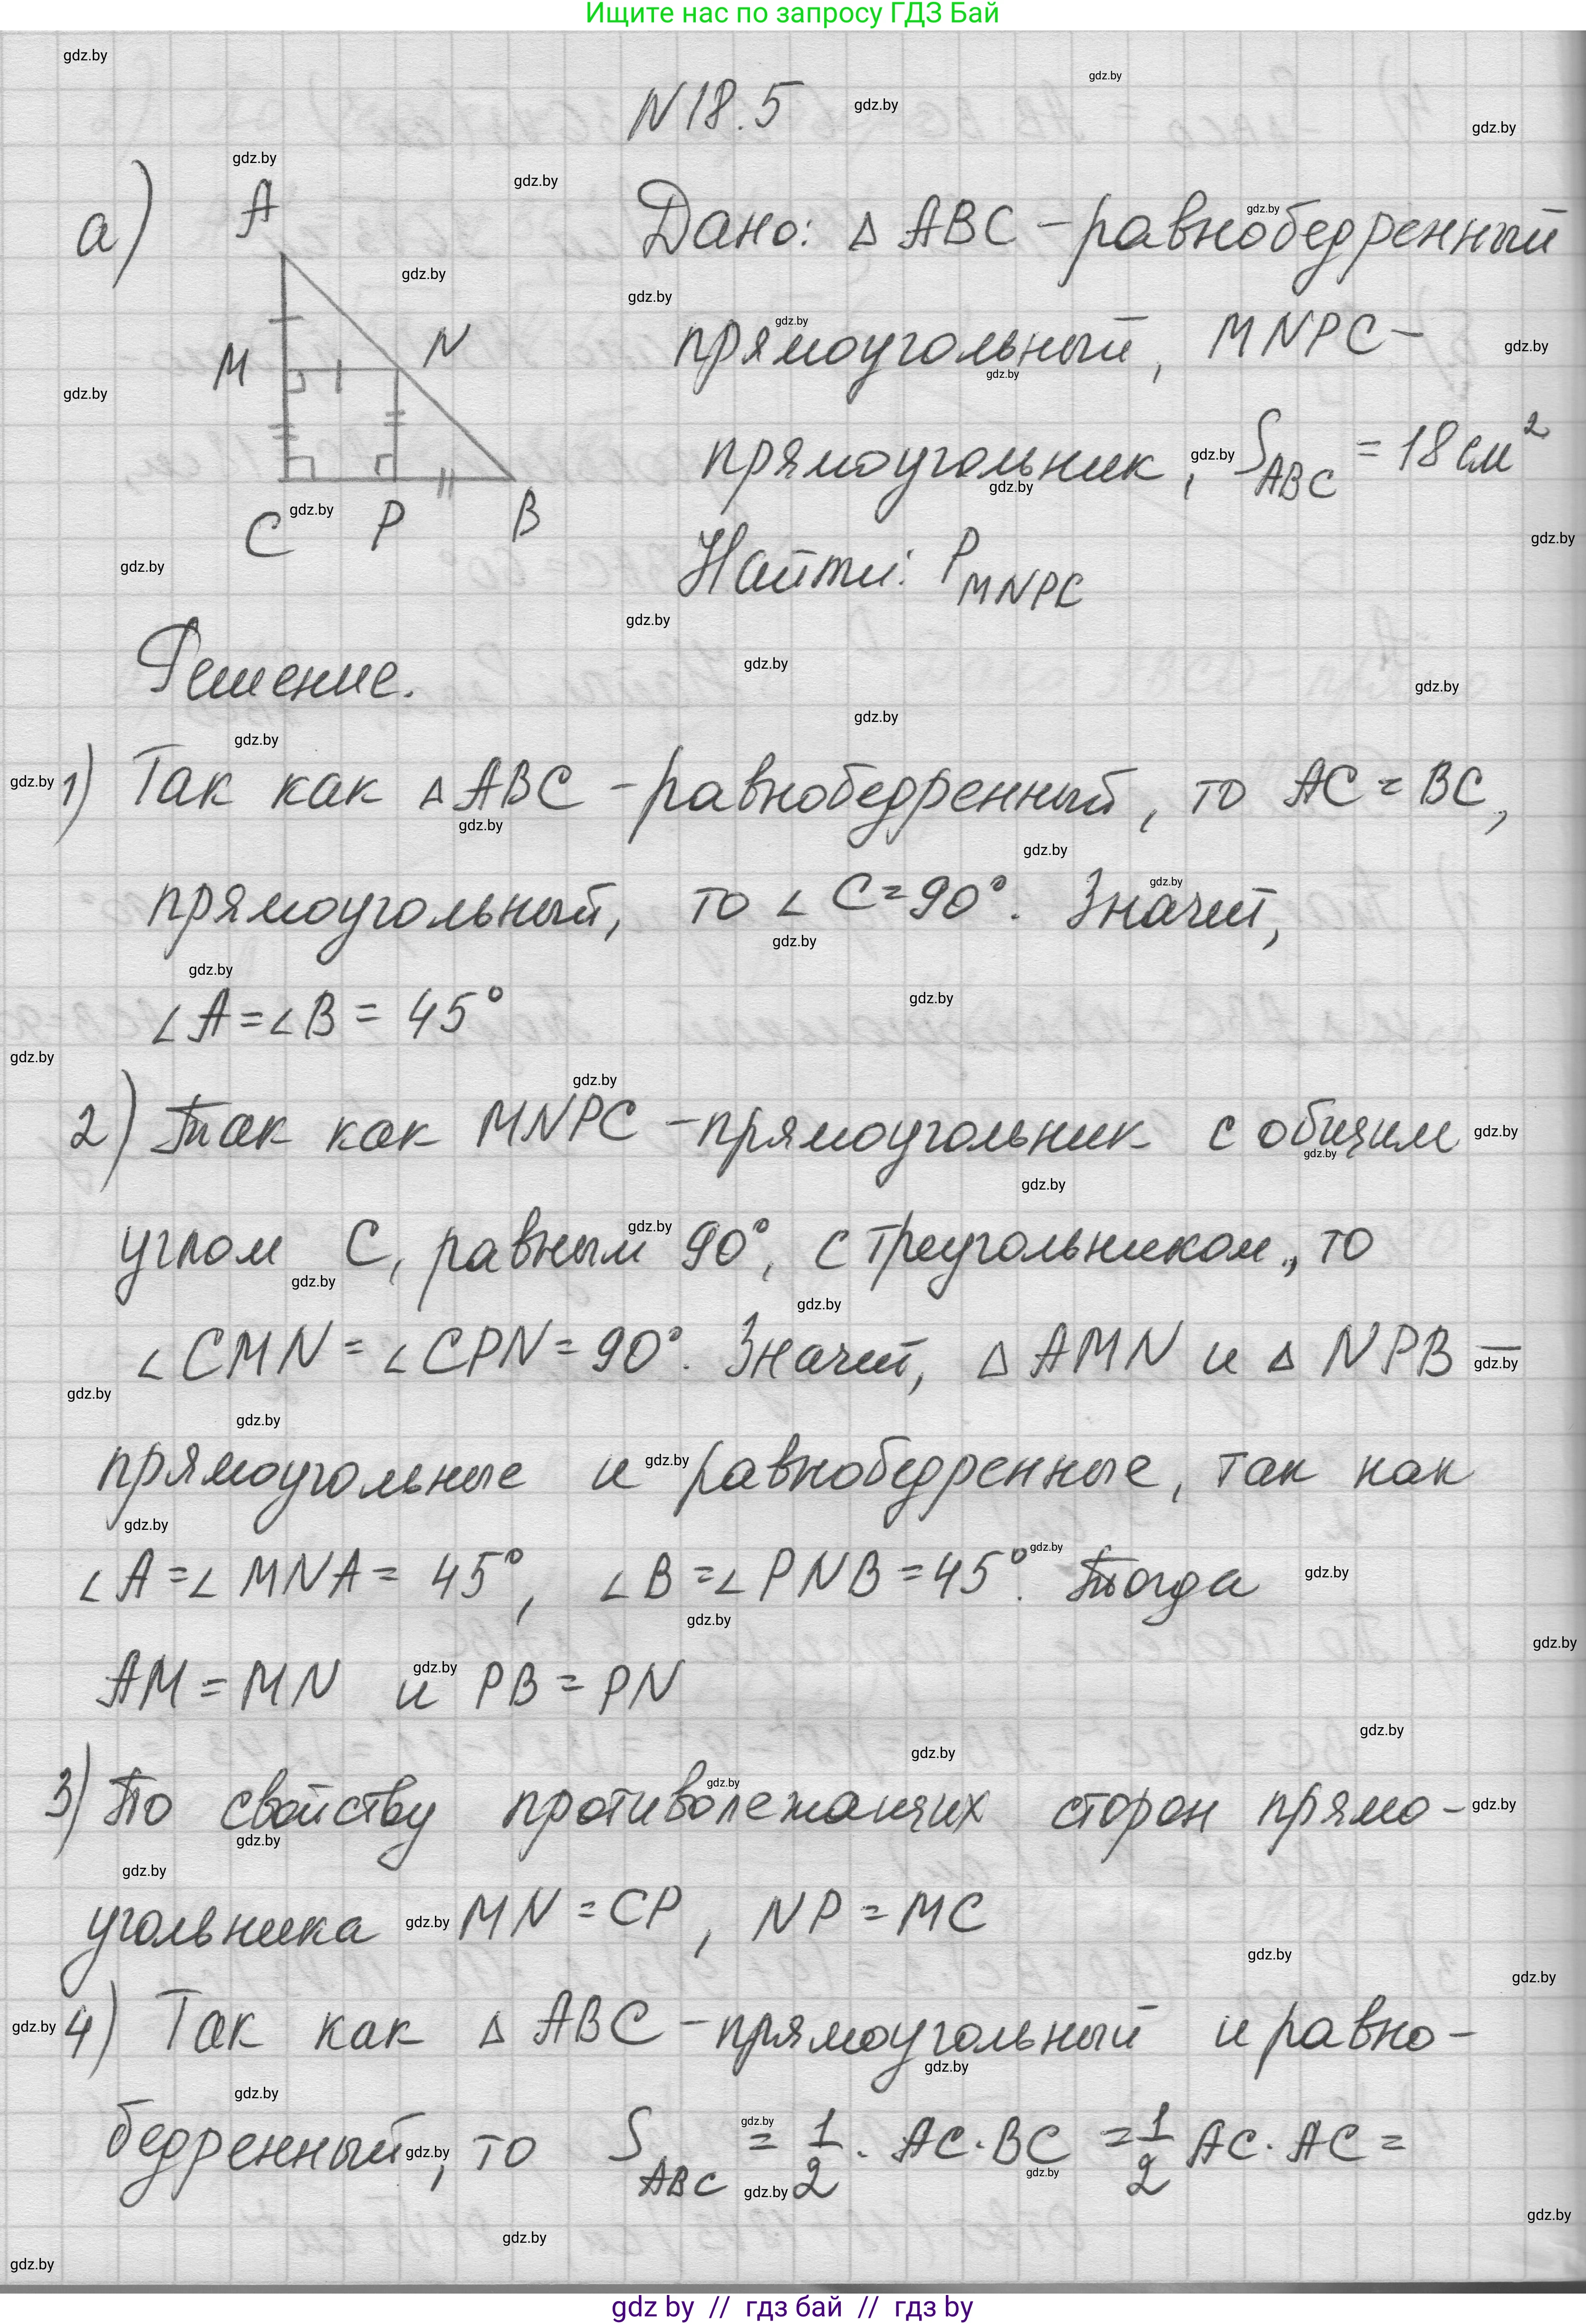 Ищите нас по запросу ГДЗ Бай
N18.5
а)
A
M
N
C
P
B
Дано: △ ABC - равнобедренный
прямоугольный, MNPC -
прямоугольник, S_ABC = 18 см²
Найти: P_MNPC
Решение.
1) Так как △ABC - равнобедренный, то AC = BC,
прямоугольный, то ∠C=90°. Значит,
∠A=∠B = 45°
2) Так как MNPC - прямоугольник с общим
углом C, равным 90°, с треугольником, то
∠CMN = ∠CPN = 90°. Значит, △ AMN и △ NPB —
прямоугольные и равнобедренные, так как
∠A =∠ MNA = 45°, ∠B =∠ PNB = 45°. Тогда
AM = MN и PB = PN
3) По свойству противолежащих сторон прямо-
угольника MN = CP, NP = MC
4) Так как △ ABC - прямоугольный и равно-
бедренный, то S_ABC = 1/2 · AC · BC = 1/2 AC · AC =
gdz by // гдз бай // гдз by